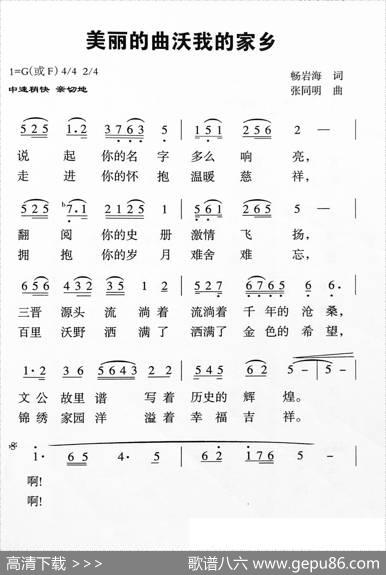 美丽的曲沃我的家乡
1=G(或F) 4/4 2/4
杨岩海 词
中速稍快 亲切地
张同明 曲
5 2 5 1·2 3 7 6 3 5 | 1 5 1 6 2 5 6 2 — |
说 起 你的 名 字 多么 响 亮,
走 进 你的 怀 抱 温暖 慈 祥,
5 2 5 ♭7·1 2 1 2 5 1 | 5 6 1 2 6 5 5 — |
翻 阅 你的 史 册 激情 飞 扬,
拥 抱 你的 岁 月 难舍 难 忘,
6 5 6 4 3 2 6 5 1 2 | 5 2 7 6 7 6 5 6·
三晋 源头 流 淌着 流淌着 千 年的 沧 桑,
百里 沃野 洒 满了 洒满了 金色的 希 望,
1·2 3 6 5 6 4 3 2 2 | 5 4 5 6 2 5 — 5 —
文公 故里 谱 写着 历史的 辉 煌。
锦绣 家园 洋 溢着 幸 福 吉 祥。
1· 6 5 4· 5 | 1· 6 5 2 5 |
啊!
啊!
高清下载 >>>
歌谱八六 www.gepu86.com